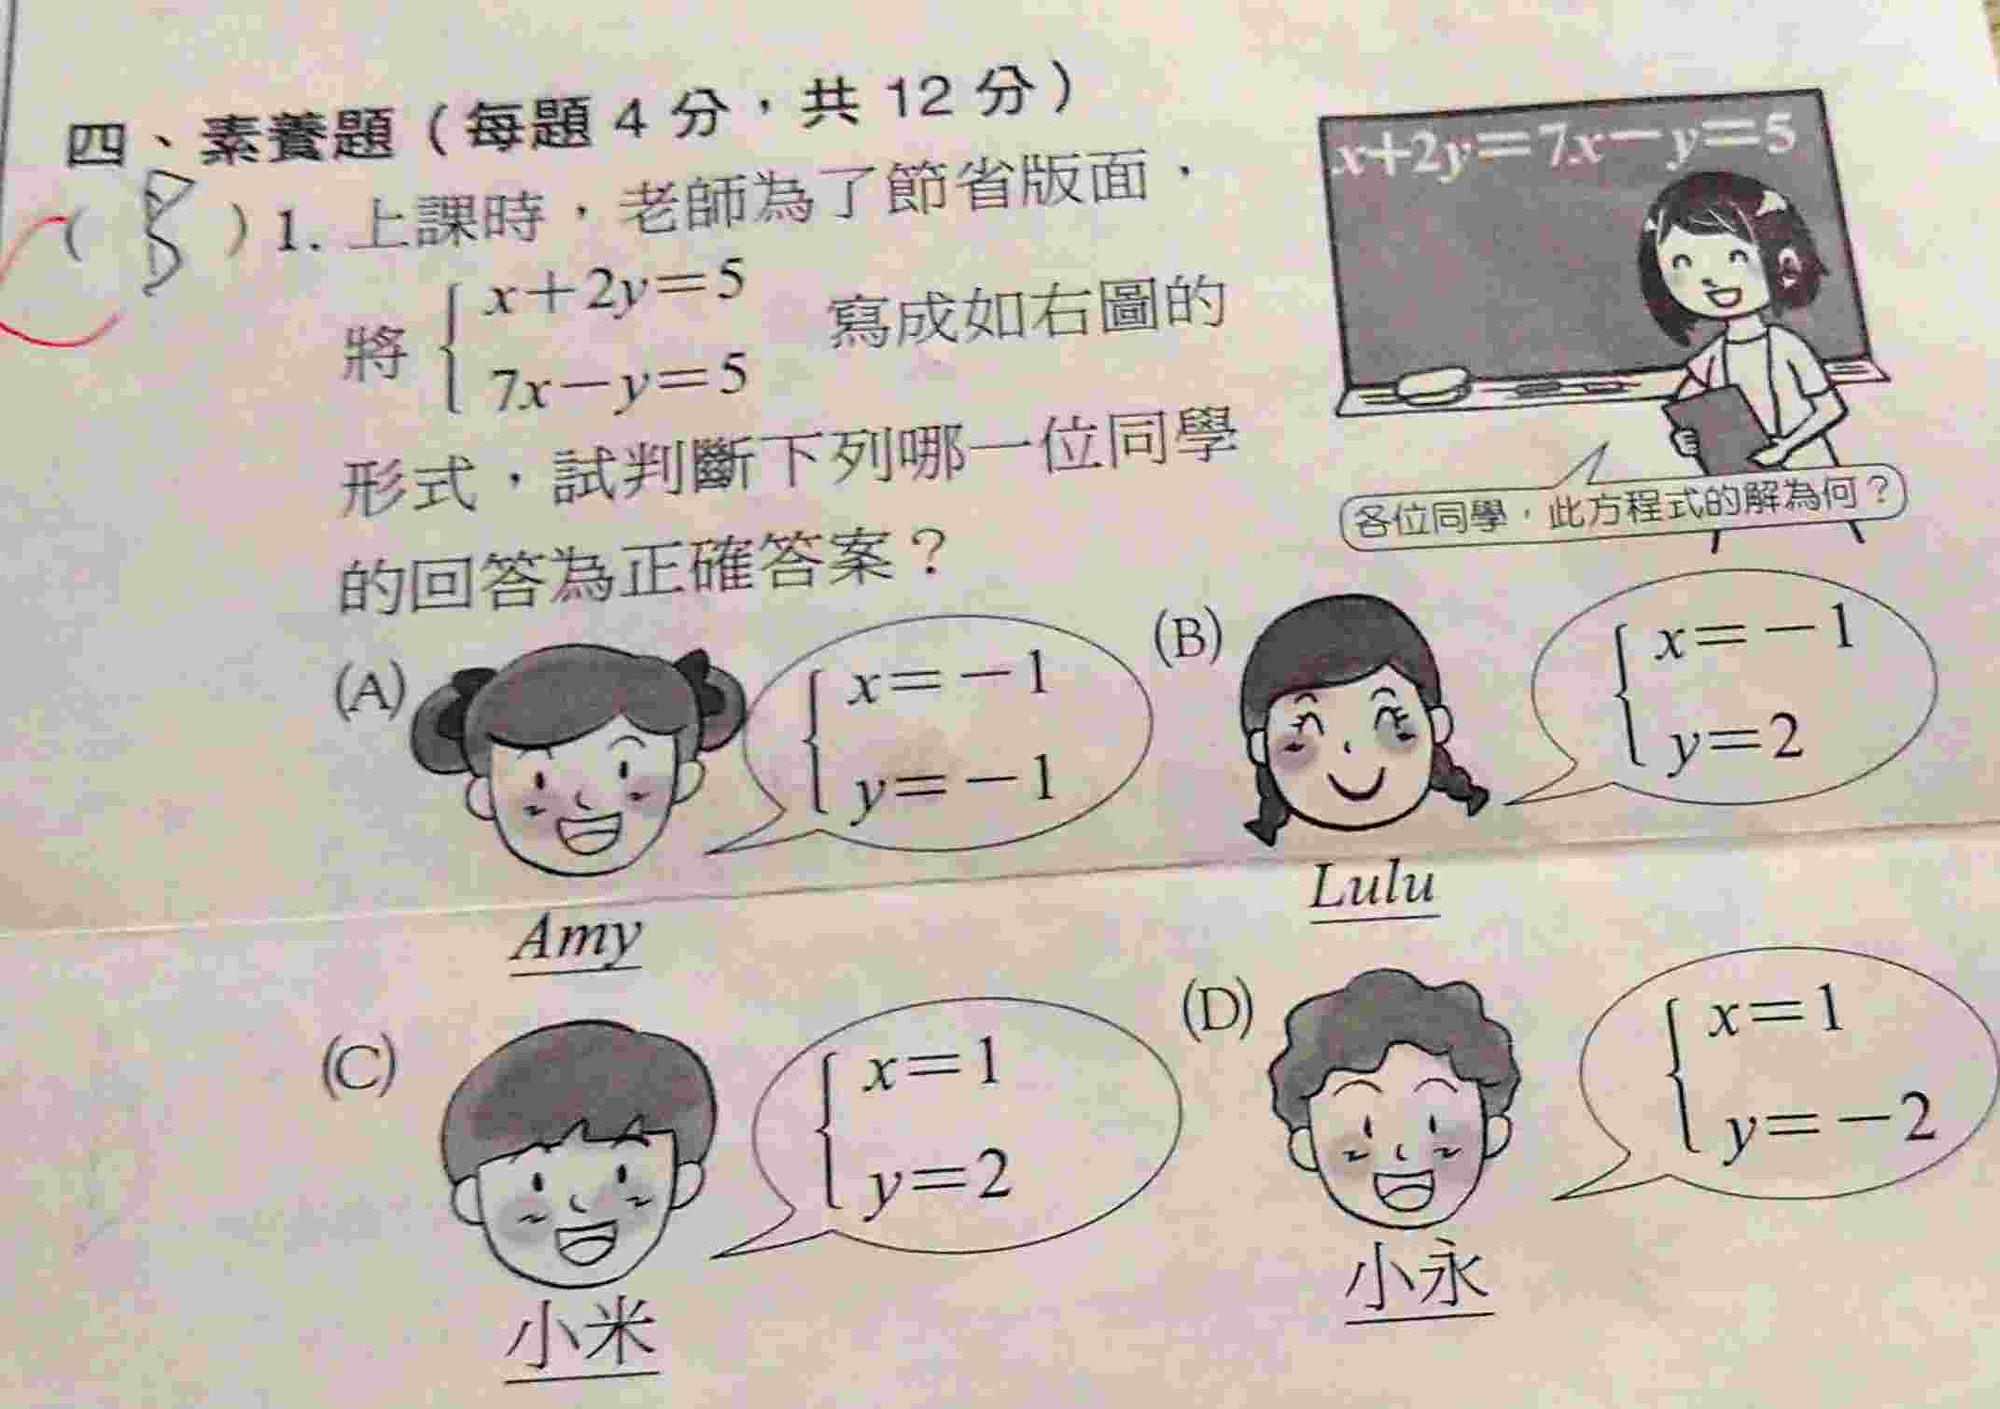 四、素養題（每題 4 分，共 12 分）
x+2y=7x−y=5
( B ) 1. 上課時，老師為了節省版面，
將 { x+2y=5
7x−y=5 寫成如右圖的
形式，試判斷下列哪一位同學
的回答為正確答案？
各位同學，此方程式的解為何？
(A) { x=−1
y=−1
Amy
(B) { x=−1
y=2
Lulu
(C) { x=1
y=2
小米
(D) { x=1
y=−2
小永